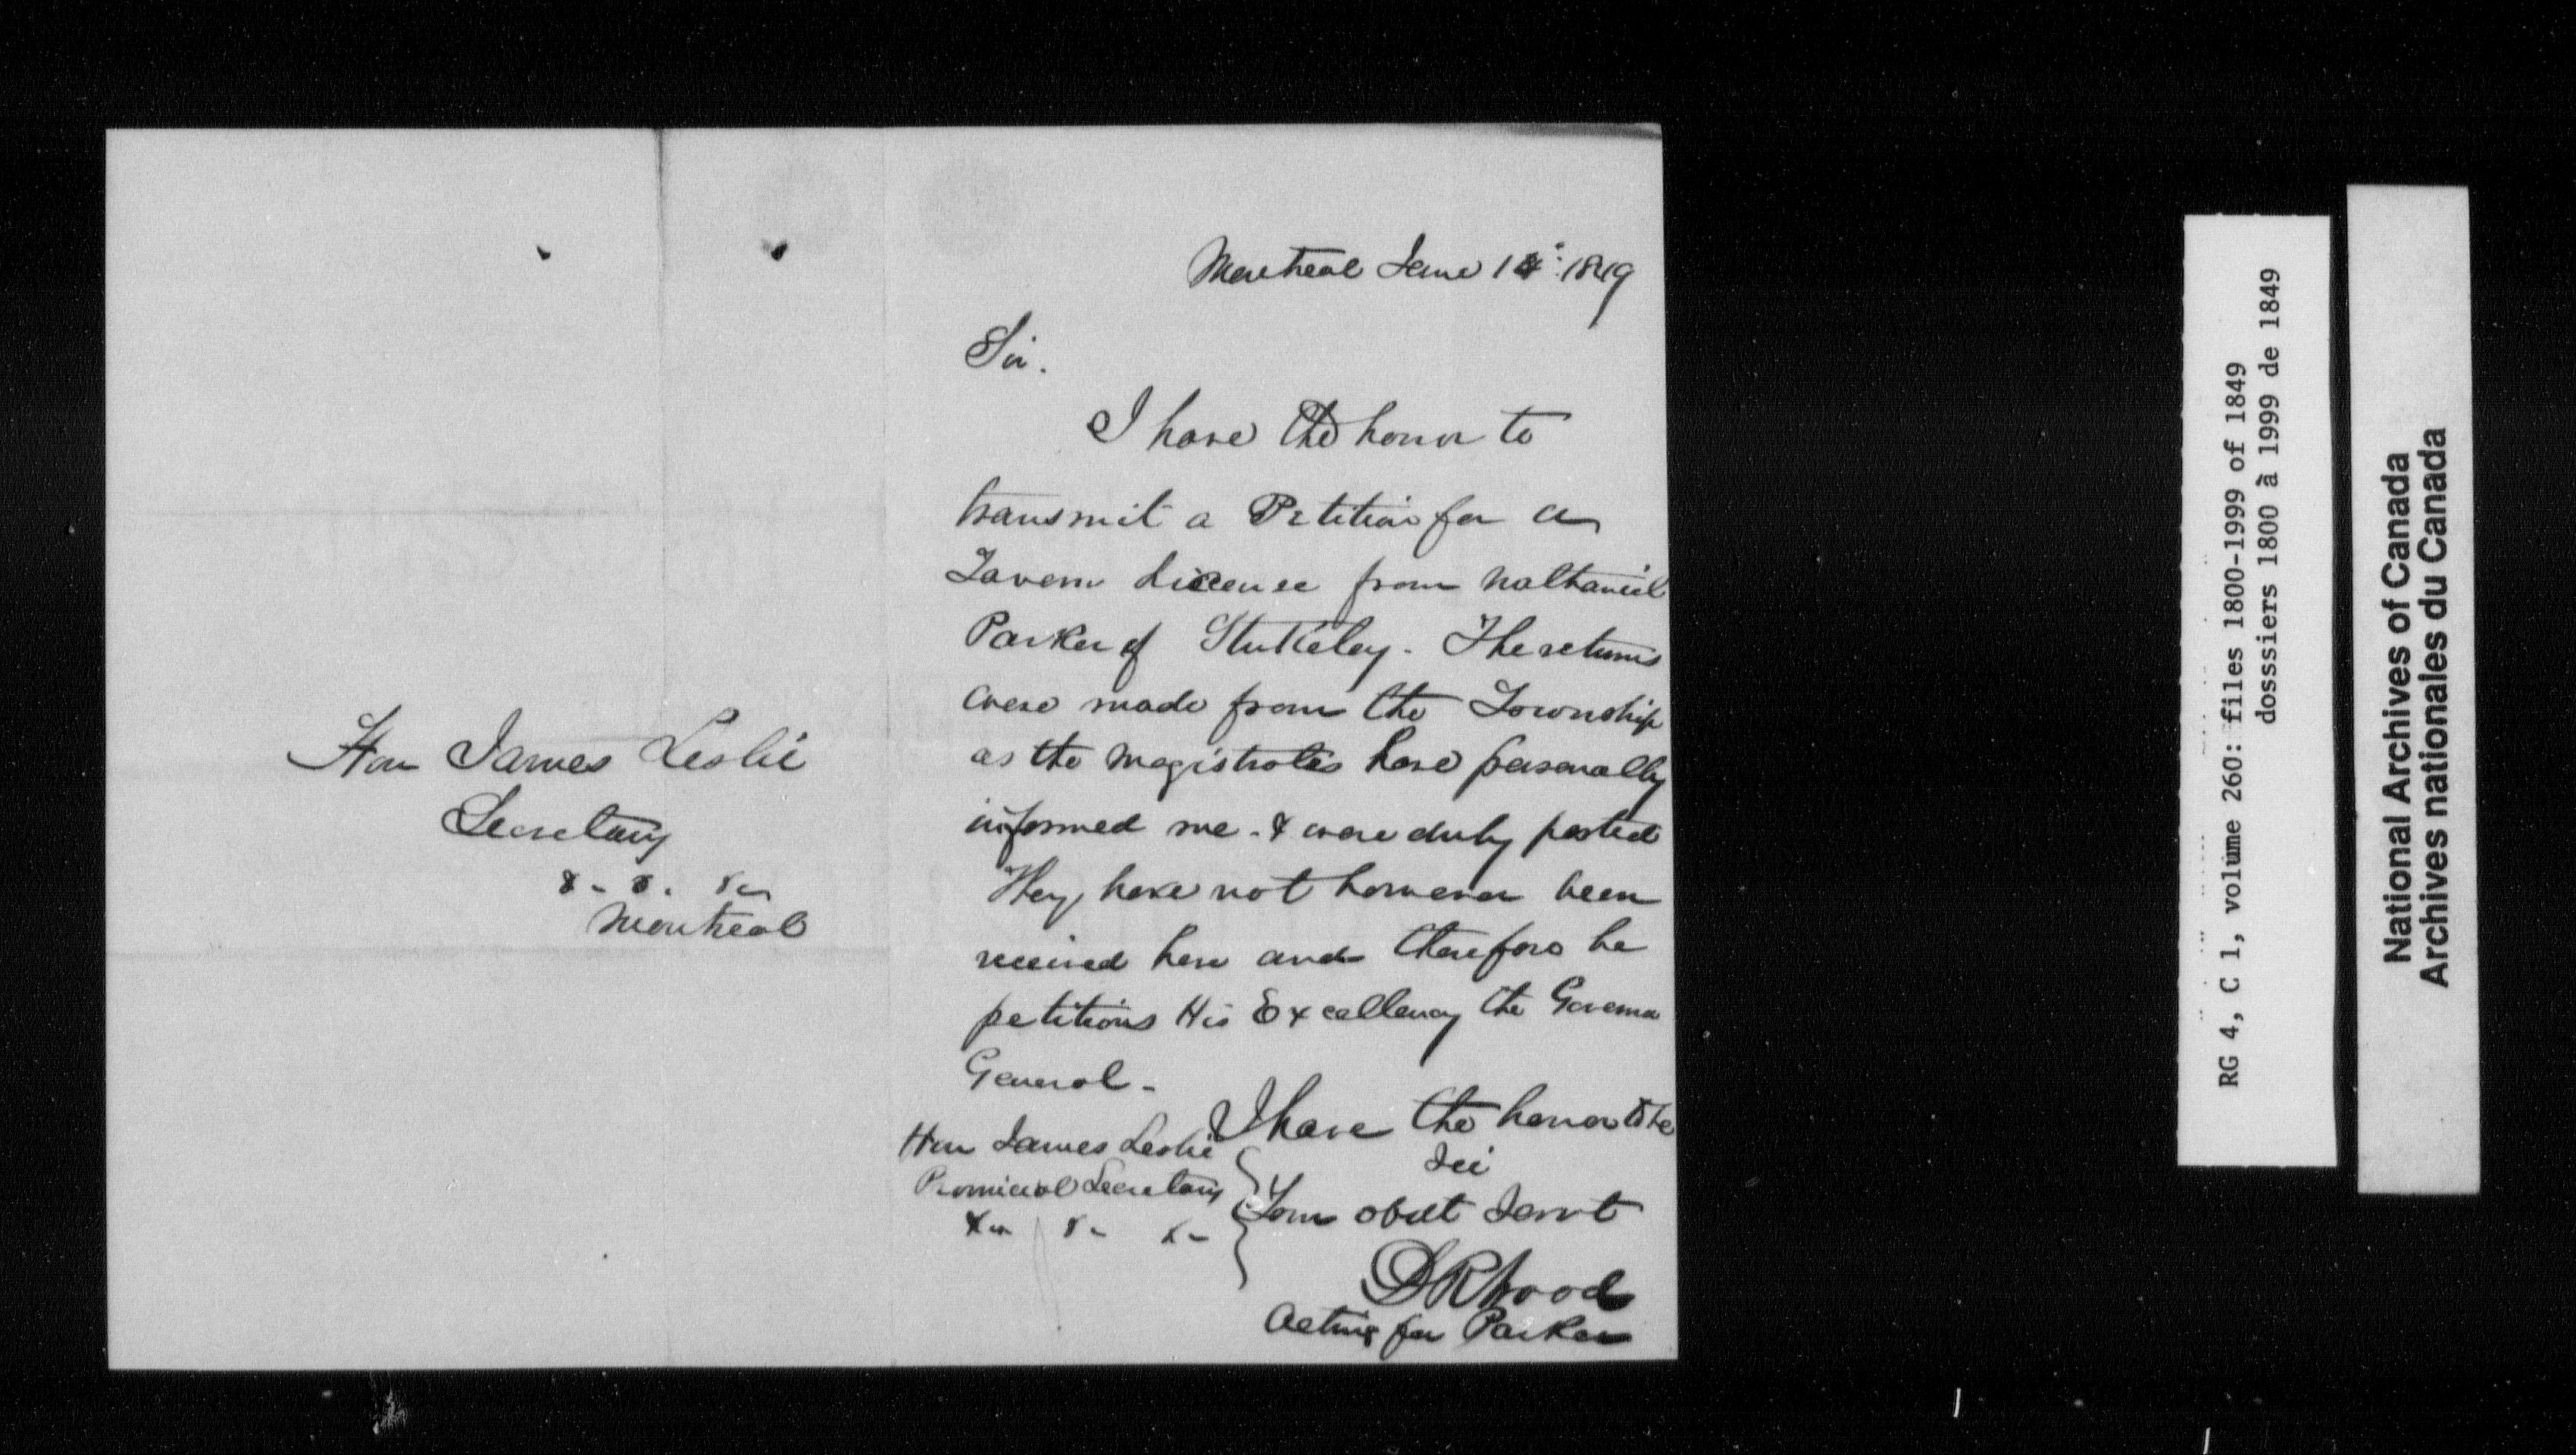 Hon James Leslie
Secretary
&- &. &c
Montreal
Montreal June 1849
Sir.
I have the honor to
transmit a Petition for a
Tavern Licence from Nathaniel
Parker of Stukeley. The returns
were made from the Township
as the Magistrates have personally
informed me - & were duly posted
They have not however been
received here and therefore he
petitions His Excellency the Governor
General -
I have the honor to be
Sir
Your obdt Servt
Hon James Leslie
Provincial Secretary
&c &c &c
D R Wood
Acting for Parker
RG 4, C 1, volume 260: files 1800-1999 of 1849
dosssiers 1800 à 1999 de 1849
National Archives of Canada
Archives nationales du Canada